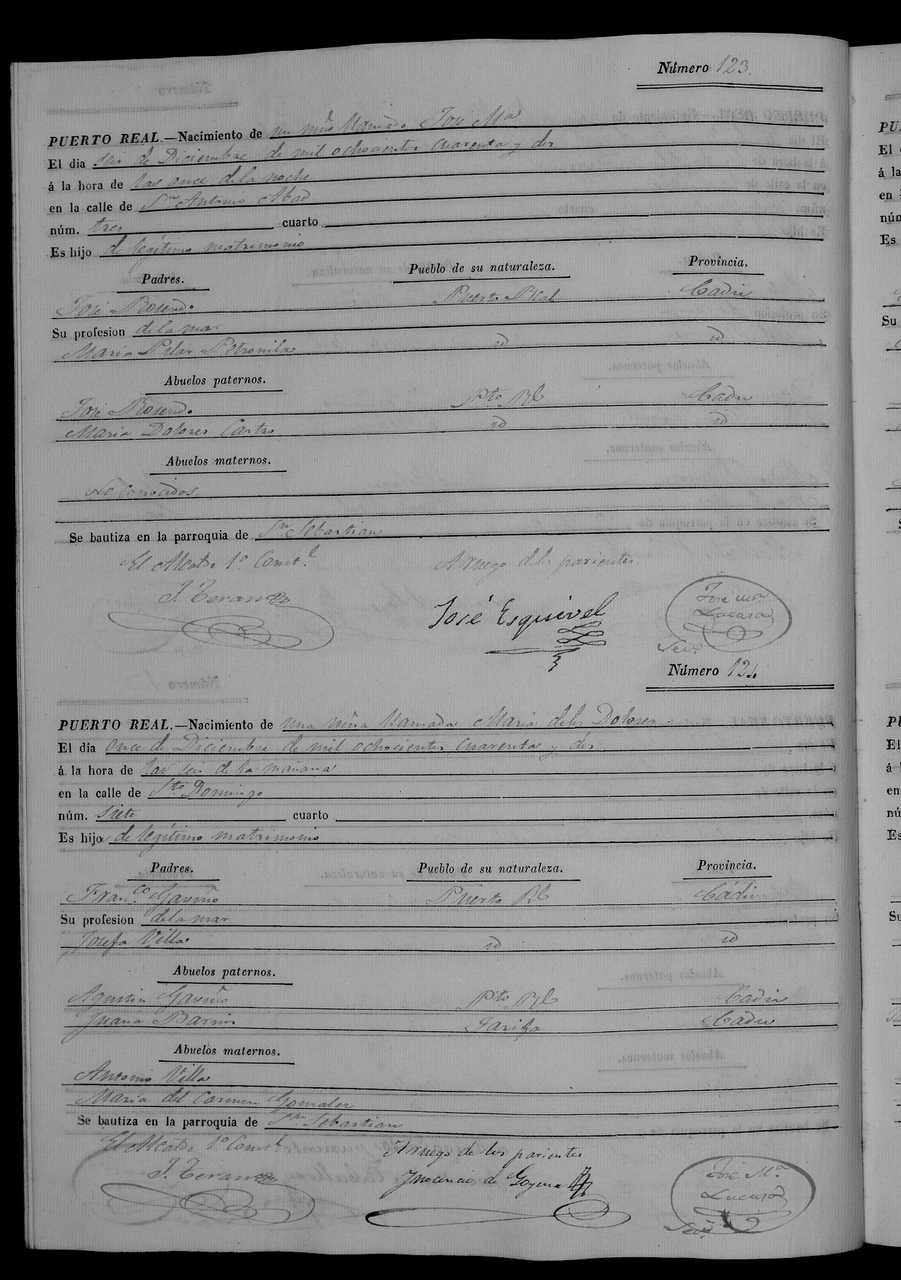 Número 123.
PUERTO REAL.—Nacimiento de un niño llamado José Mª
El dia seis de Diciembre de mil ochocientos cuarenta y dos
á la hora de las once de la noche
en la calle de Sn Antonio Abad
núm. tres cuarto
Es hijo de legítimo matrimonio
Padres. Pueblo de su naturaleza. Provincia.
José Rosendo Puerto Real Cadiz
Su profesion de la mar
Maria Pilar Petronila id id
Abuelos paternos.
José Rosendo Pto Rl Cadiz
Maria Dolores Castro id id
Abuelos maternos.
No conocidos
Se bautiza en la parroquia de Sn Sebastian
El Alcalde 1º Constl. A ruego de los parientes
J. Teran José Esquivel José Mª
Sriō
Número 124
PUERTO REAL.—Nacimiento de una niña llamada Maria de los Dolores
El dia once de Diciembre de mil ochocientos cuarenta y dos
á la hora de las seis de la mañana
en la calle de Sto Domingo
núm. siete cuarto
Es hijo de legítimo matrimonio
Padres. Pueblo de su naturaleza. Provincia.
Franco. Gaviño Puerto Rl Cádiz
Su profesion de la mar
Josefa Villa id id
Abuelos paternos.
Agustin Gaviño Pto Rl Cadiz
Juana Barrios Tarifa Cadiz
Abuelos maternos.
Antonio Villa
Maria del Carmen Gonzalez
Se bautiza en la parroquia de San Sebastian
El Alcalde 1º Constl A ruego de los parientes
J. Teran Inocencio de Goyena José Mª